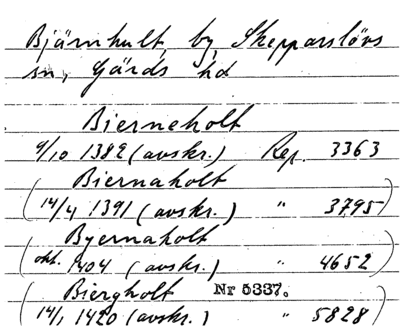 Bjärnhult, by, Skepparslövs
sn, Gärds hd
Bierneholt
9/10 1382 (avskr.) Rep. 3363
(Biernaholt
14/4 1391 (avskr.) " 3795)
(Byernaholt
okt. 1404 (avskr.) " 4652)
(Biergholt Nr 5337.
14/1 1420 (avskr.) " 5828)